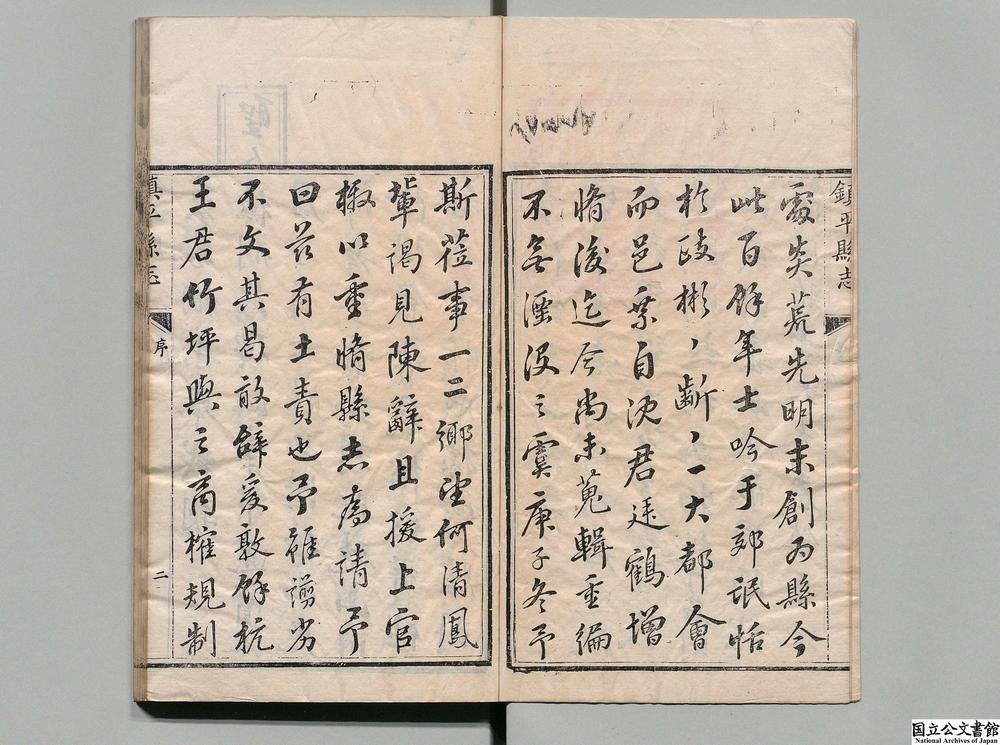 鎮平縣志
處炎荒先明末創为縣今
此百餘年士吟于郊氓恬
於畝彬丶斷丶一大都會
而邑乘自沈君廷鶴增
脩後迄今尚未蒐輯重編
不無湮沒之虞庚子冬予
斯蒞事一二鄉望何清鳳
輩謁見陳辭且援上官
檄以重脩縣志為請予
曰茲有土責也予雖謭劣
不文其曷敢辭爰敦餘杭
王君竹坪與之商榷規制
鎮平縣志 序 二
国立公文書館
National Archives of Japan